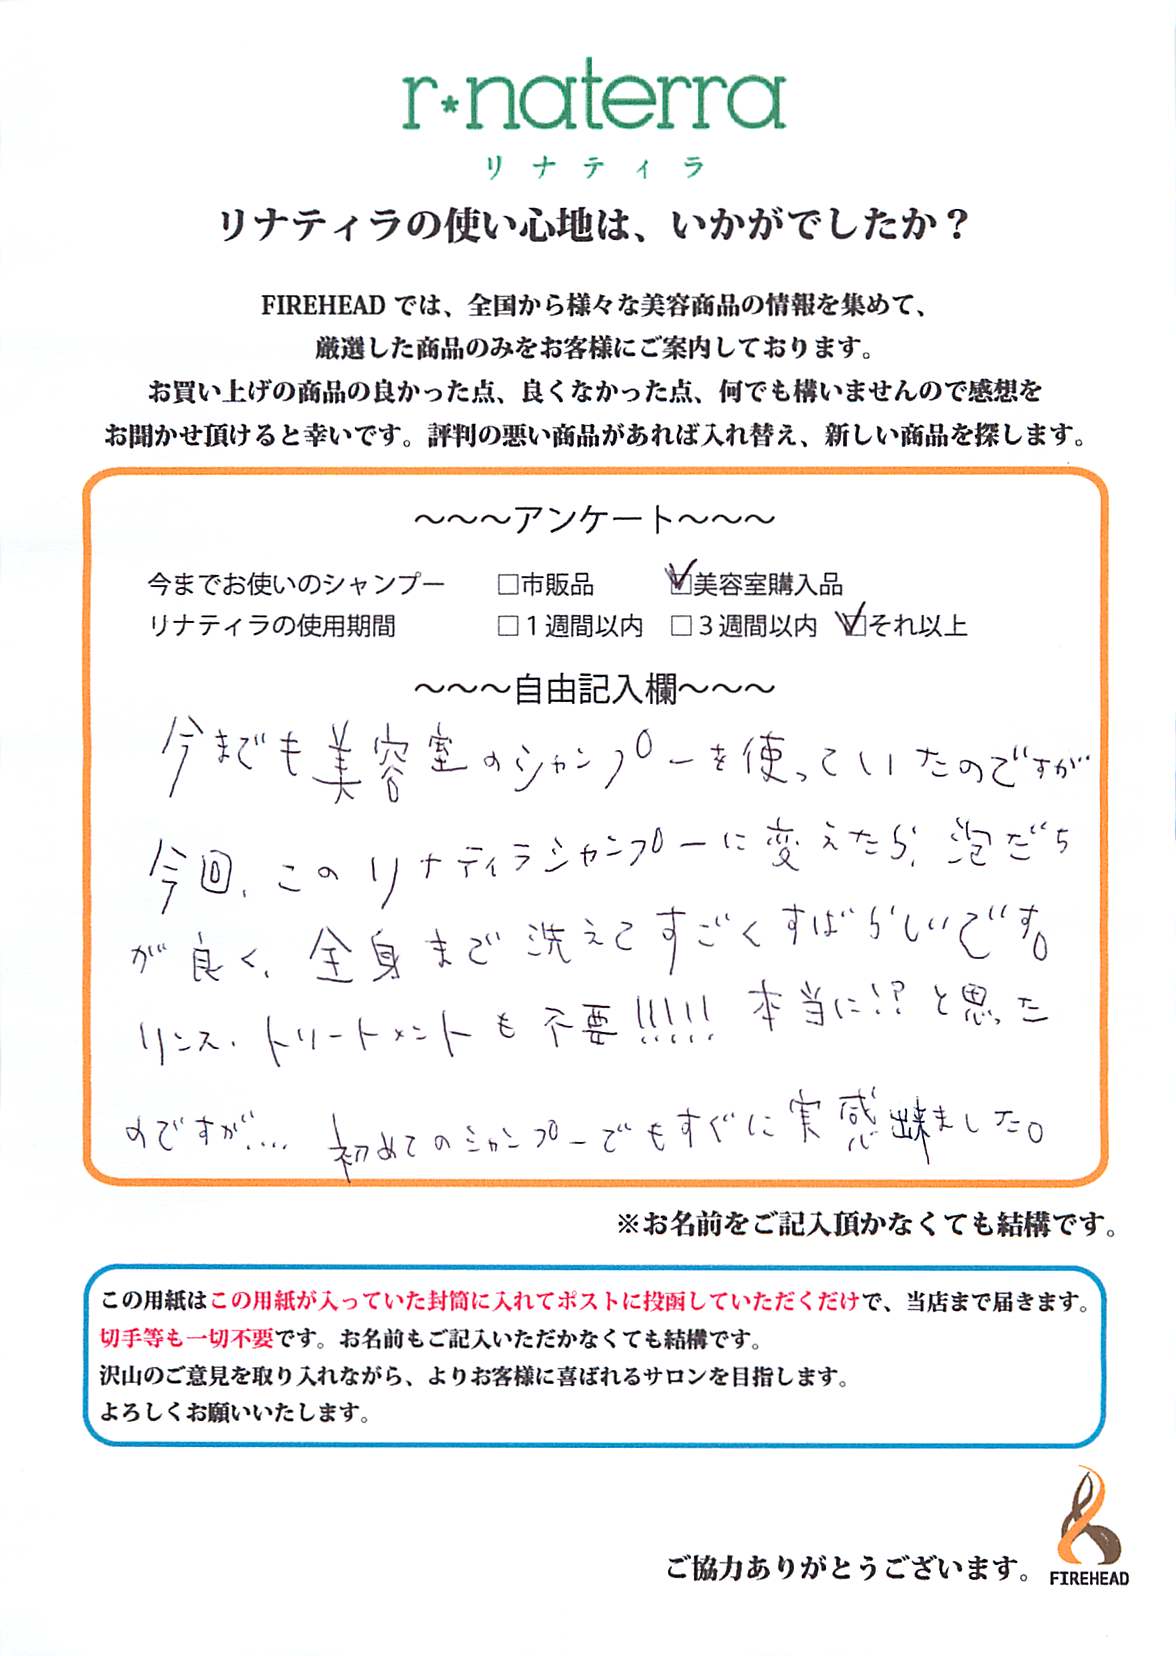 r*naterra
リナティラ
リナティラの使い心地は、いかがでしたか？
FIREHEADでは、全国から様々な美容商品の情報を集めて、
厳選した商品のみをお客様にご案内しております。
お買い上げの商品の良かった点、良くなかった点、何でも構いませんので感想を
お聞かせ頂けると幸いです。評判の悪い商品があれば入れ替え、新しい商品を探します。
～～～アンケート～～～
今までお使いのシャンプー □市販品 ☑美容室購入品
リナティラの使用期間 □１週間以内 □３週間以内 ☑それ以上
～～～自由記入欄～～～
今までも美容室のシャンプーを使っていたのですが
今回、このリナティラシャンプーに変えたら、泡だち
が良く、全身まで洗えてすごくすばらしいです。
リンス、トリートメントも不要!!!!!! 本当に!?と思った
のですが... 初めてのシャンプーでもすぐに実感出来ました。
※お名前をご記入頂かなくても結構です。
この用紙はこの用紙が入っていた封筒に入れてポストに投函していただくだけで、当店まで届きます。
切手等も一切不要です。お名前もご記入いただかなくても結構です。
沢山のご意見を取り入れながら、よりお客様に喜ばれるサロンを目指します。
よろしくお願いいたします。
ご協力ありがとうございます。
FIREHEAD